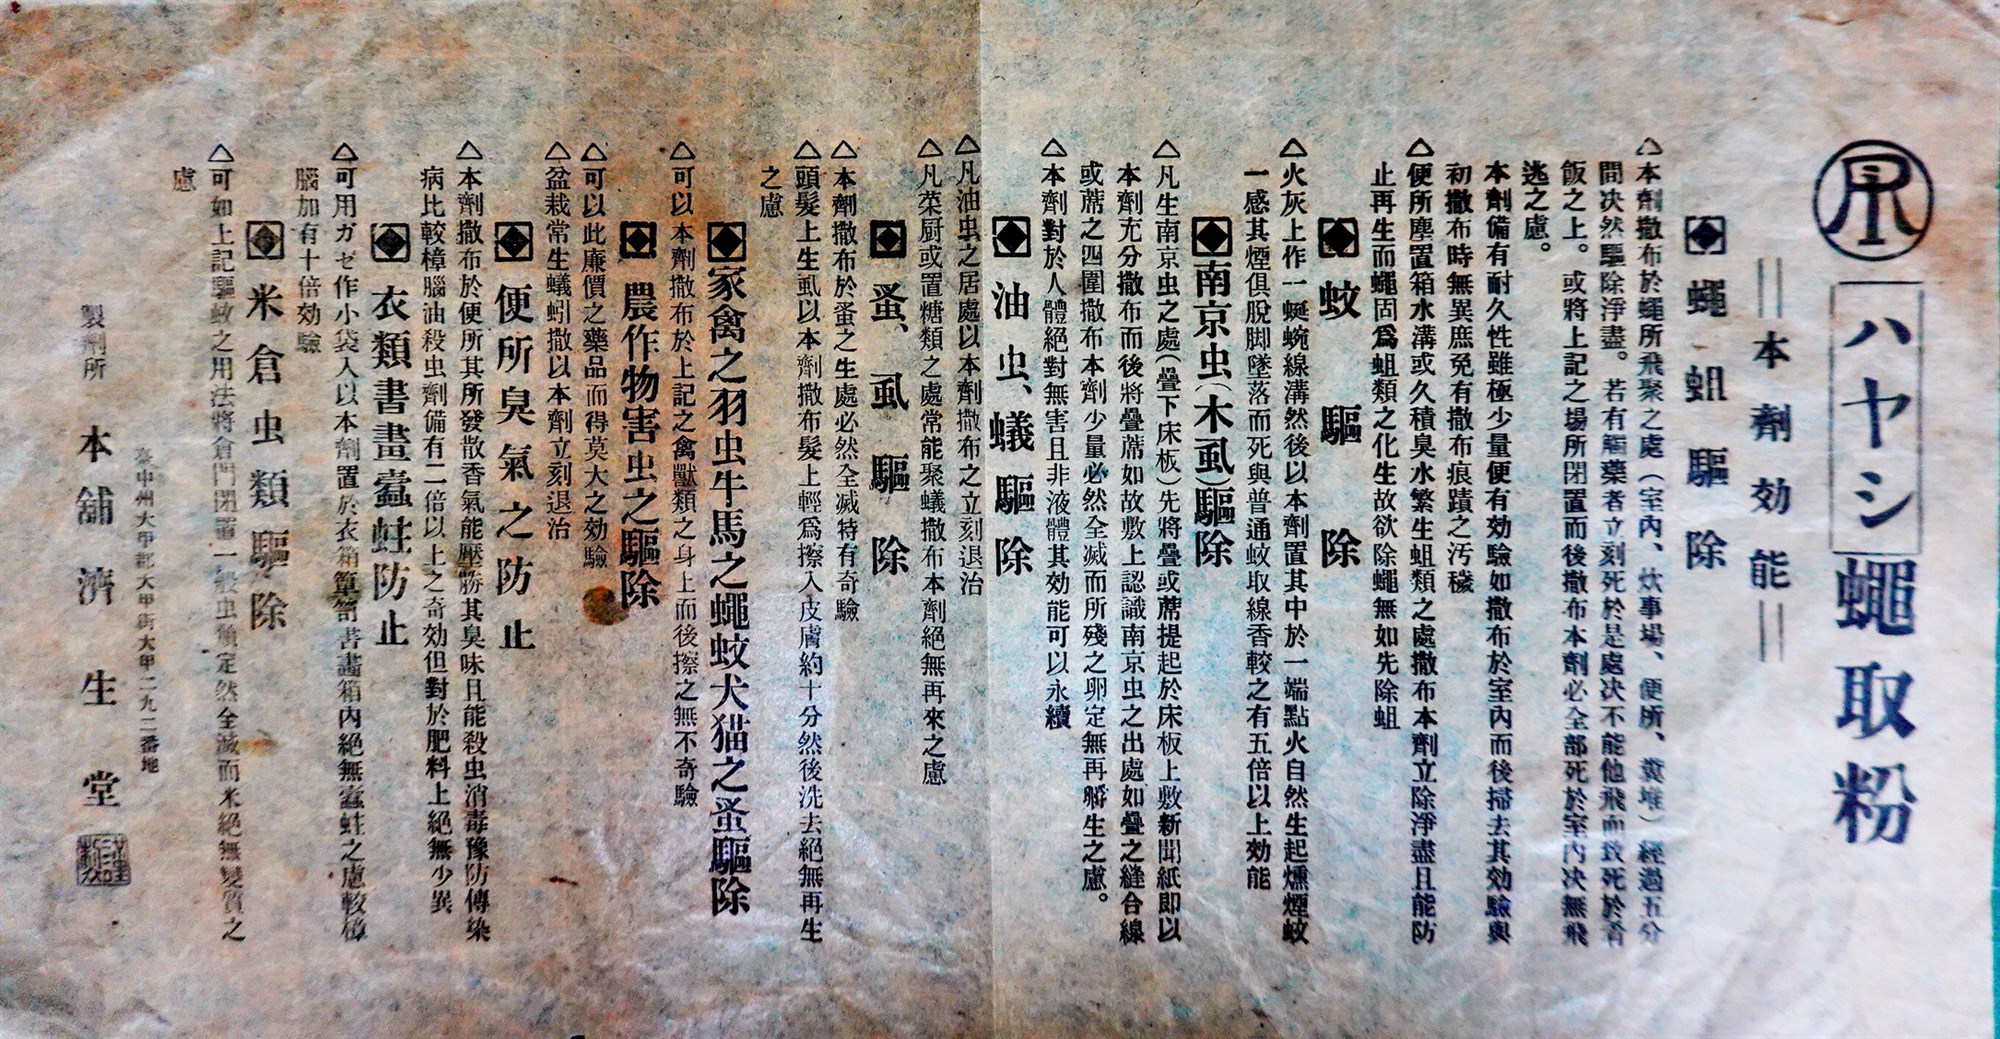 ハヤシ蠅取粉
＝本劑効能＝
蠅蛆驅除
△本劑撒布於蠅所飛聚之處（室內、炊事場、便所、糞堆）經過五分
間決然驅除淨盡。若有觸藥者立刻死於是處決不能他飛而致死於肴
飯之上。或將上記之場所閉置而後撒布本劑必全部死於室內決無飛
逃之慮。
本劑備有耐久性雖極少量便有効驗如撒布於室內而後掃去其効驗與
初撒布時無異庶免有撒布痕蹟之污穢
△便所塵置箱水溝或久積臭水繁生蛆類之處撒布本劑立除淨盡且能防
止再生而蠅固爲蛆類之化生故欲除蠅無如先除蛆
蚊驅除
△火灰上作一蜒蜿線溝然後以本劑置其中於一端點火自然生起燻煙蚊
一感其煙俱脫脚墜落而死與普通蚊取線香較之有五倍以上効能
南京虫(木虱)驅除
△凡生南京虫之處(疊下床板)先將疊或蓆提起於床板上敷新聞紙即以
本劑充分撒布而後將疊蓆如故敷上認識南京虫之出處如疊之縫合線
或蓆之四圍撒布本劑少量必然全滅而所殘之卵定無再孵生之慮。
△本劑對於人體絕對無害且非液體其効能可以永續
油虫、蟻驅除
△凡油虫之居處以本劑撒布之立刻退治
△凡菜厨或置糖類之處常能聚蟻撒布本劑絕無再來之慮
蚤、虱驅除
△本劑撒布於蚤之生處必然全滅特有奇驗
△頭髮上生虱以本劑撒布髮上輕爲擦入皮膚約十分然後洗去絕無再生
之慮
家禽之羽虫牛馬之蠅蚊犬猫之蚤驅除
△可以本劑撒布於上記之禽獸類之身上而後擦之無不奇驗
農作物害虫之驅除
△可以此廉價之藥品而得莫大之効驗
△盆栽常生蟻蚓撒以本劑立刻退治
便所臭氣之防止
△本劑撒布於便所其所發散香氣能壓勝其臭味且能殺虫消毒豫防傳染
病比較樟腦油殺虫劑備有二倍以上之奇効但對於肥料上絕無少異
衣類書畫蠹蛀防止
△可用ガゼ作小袋入以本劑置於衣箱簞笥書畵箱內絕無蠹蛀之慮較樟
腦加有十倍効驗
米倉虫類驅除
△可如上記驅蚊之用法將倉門閉置一般虫類定然全滅而米絕無變質之
慮
臺中州大甲郡大甲街大甲二九二番地
製劑所 本舖 濟生堂